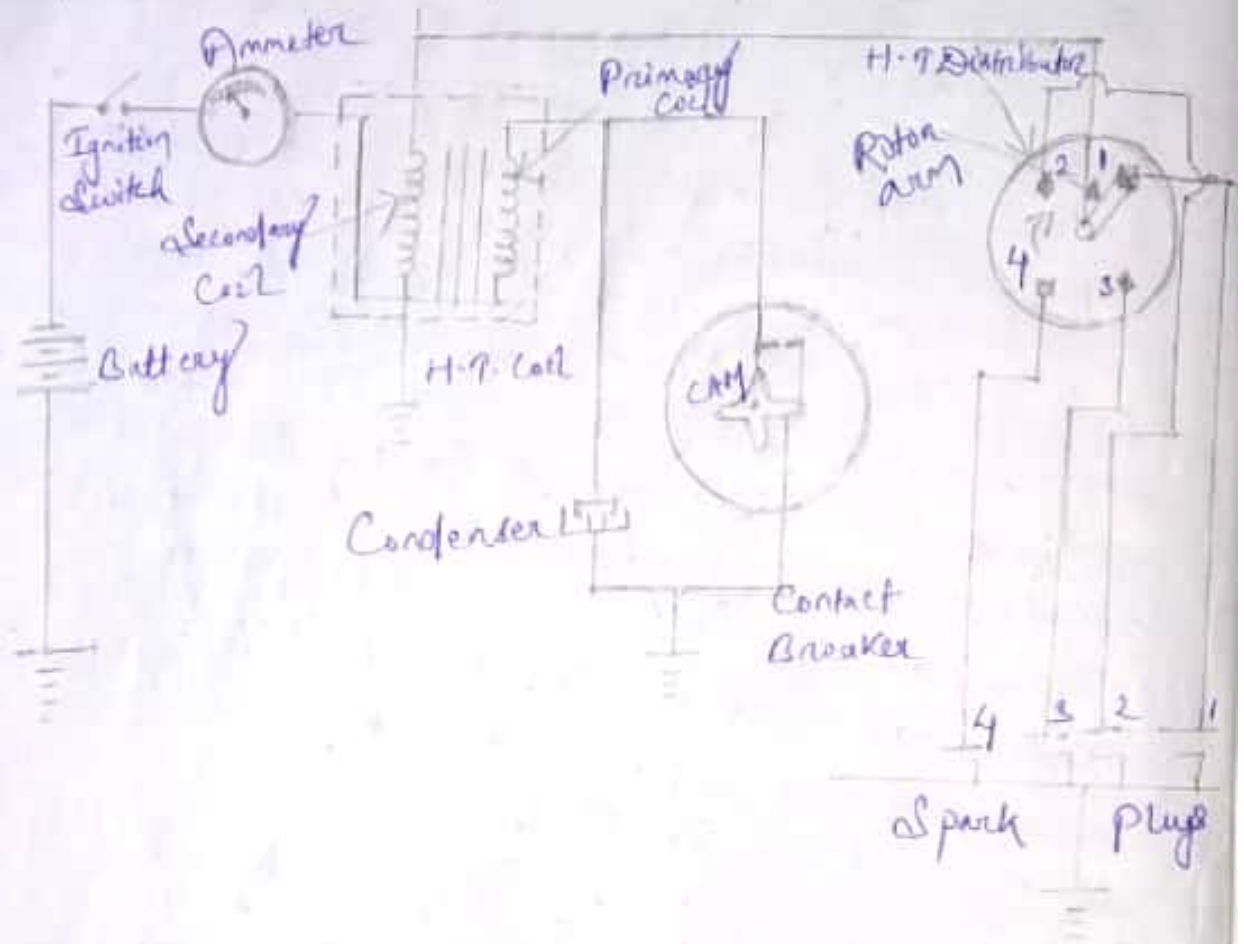 Ammeter
Ignition
Switch
Secondary
Coil
Primary
Coil
H.T Distributor
Rotor
arm
2
1
4
3
Battery
H.T. Coil
CAM
Condenser
Contact
Breaker
4
3
2
1
Spark Plugs